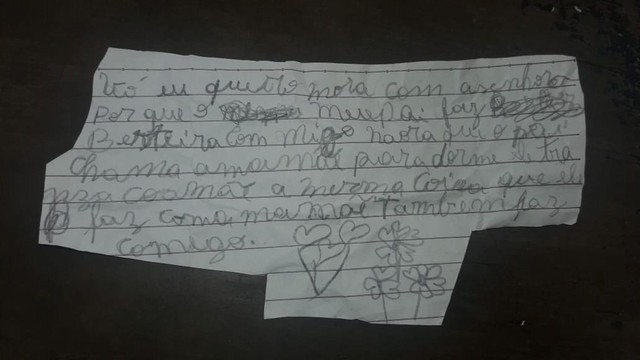 Vó eu quero mora com a senhora
Por que o meu pai faz
Besteira com migo na ora que o pai
chama a mamãe para dormi ele tra
a mesma Coisa que ele
faz com a mamãe também faz
comigo.